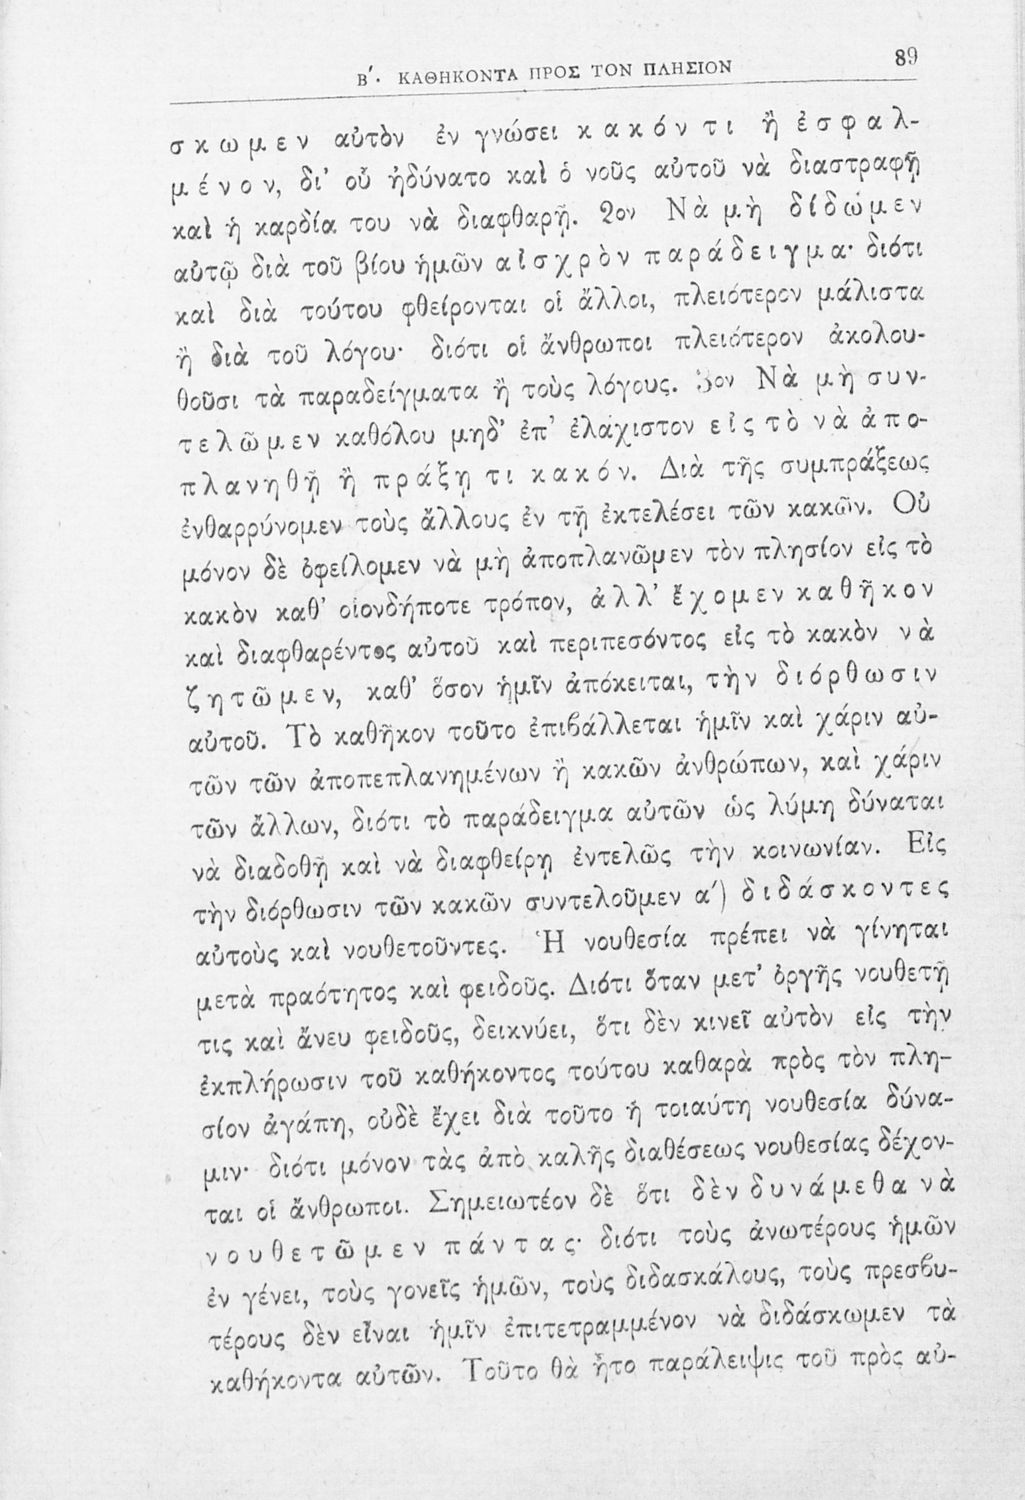 Β΄. ΚΑΘΗΚΟΝΤΑ ΠΡΟΣ ΤΟΝ ΠΛΗΣΙΟΝ 89
σκωμεν αὐτὸν ἐν γνώσει κακόν τι ἢ ἐσφαλ-
μένον, δι' οὗ ἠδύνατο καὶ ὁ νοῦς αὐτοῦ νὰ διαστραφῇ
καὶ ἡ καρδία του νὰ διαφθαρῇ. 2ον Νὰ μὴ δίδωμεν
αὐτῷ διὰ τοῦ βίου ἡμῶν αἰσχρὸν παράδειγμα· διότι
καὶ διὰ τούτου φθείρονται οἱ ἄλλοι, πλειότερον μάλιστα
ἢ διὰ τοῦ λόγου· διότι οἱ ἄνθρωποι πλειότερον ἀκολου-
θοῦσι τὰ παραδείγματα ἢ τοὺς λόγους. 3ον Νὰ μὴ συν-
τελῶμεν καθόλου μηδ' ἐπ' ἐλάχιστον εἰς τὸ νὰ ἀπο-
πλανηθῇ ἢ πράξῃ τι κακόν. Διὰ τῆς συμπράξεως
ἐνθαρρύνομεν τοὺς ἄλλους ἐν τῇ ἐκτελέσει τῶν κακῶν. Οὐ
μόνον δὲ ὀφείλομεν νὰ μὴ ἀποπλανῶμεν τὸν πλησίον εἰς τὸ
κακὸν καθ' οἱονδήποτε τρόπον, ἀλλ' ἔχομεν καθῆκον
καὶ διαφθαρέντος αὐτοῦ καὶ περιπεσόντος εἰς τὸ κακὸν νὰ
ζητῶμεν, καθ' ὅσον ἡμῖν ἀπόκειται, τὴν διόρθωσιν
αὐτοῦ. Τὸ καθῆκον τοῦτο ἐπιβάλλεται ἡμῖν καὶ χάριν αὐ-
τῶν τῶν ἀποπεπλανημένων ἢ κακῶν ἀνθρώπων, καὶ χάριν
τῶν ἄλλων, διότι τὸ παράδειγμα αὐτῶν ὡς λύμη δύναται
νὰ διαδοθῇ καὶ νὰ διαφθείρῃ ἐντελῶς τὴν κοινωνίαν. Εἰς
τὴν διόρθωσιν τῶν κακῶν συντελοῦμεν α΄) διδάσκοντες
αὐτοὺς καὶ νουθετοῦντες. Ἡ νουθεσία πρέπει νὰ γίνηται
μετὰ πραότητος καὶ φειδοῦς. Διότι ὅταν μετ' ὀργῆς νουθετῇ
τις καὶ ἄνευ φειδοῦς, δεικνύει, ὅτι δὲν κινεῖ αὐτὸν εἰς τὴν
ἐκπλήρωσιν τοῦ καθήκοντος τούτου καθαρὰ πρὸς τὸν πλη-
σίον ἀγάπη, οὐδὲ ἔχει διὰ τοῦτο ἡ τοιαύτη νουθεσία δύνα-
μιν· διότι μόνον τὰς ἀπὸ καλῆς διαθέσεως νουθεσίας δέχον-
ται οἱ ἄνθρωποι. Σημειωτέον δὲ ὅτι δὲν δυνάμεθα νὰ
νουθετῶμεν πάντας· διότι τοὺς ἀνωτέρους ἡμῶν
ἐν γένει, τοὺς γονεῖς ἡμῶν, τοὺς διδασκάλους, τοὺς πρεσβυ-
τέρους δὲν εἶναι ἡμῖν ἐπιτετραμμένον νὰ διδάσκωμεν τὰ
καθήκοντα αὐτῶν. Τοῦτο θὰ ἦτο παράλειψις τοῦ πρὸς αὐ-